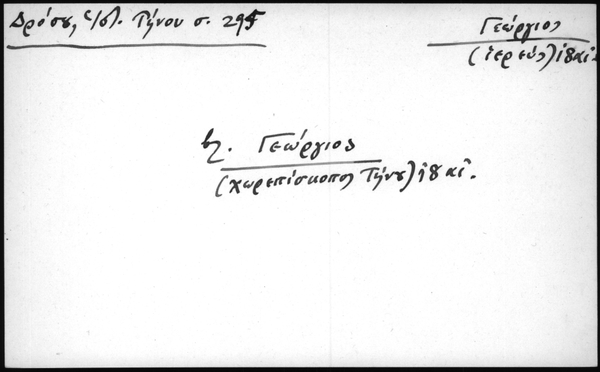 Δρόσου, Ἱστ. Τήνου σ. 295
Γεώργιος
(ἱερεύς) 18 αἰ.
βλ. Γεώργιος
(χωρεπίσκοπος Τήνου) 18 αἰ.